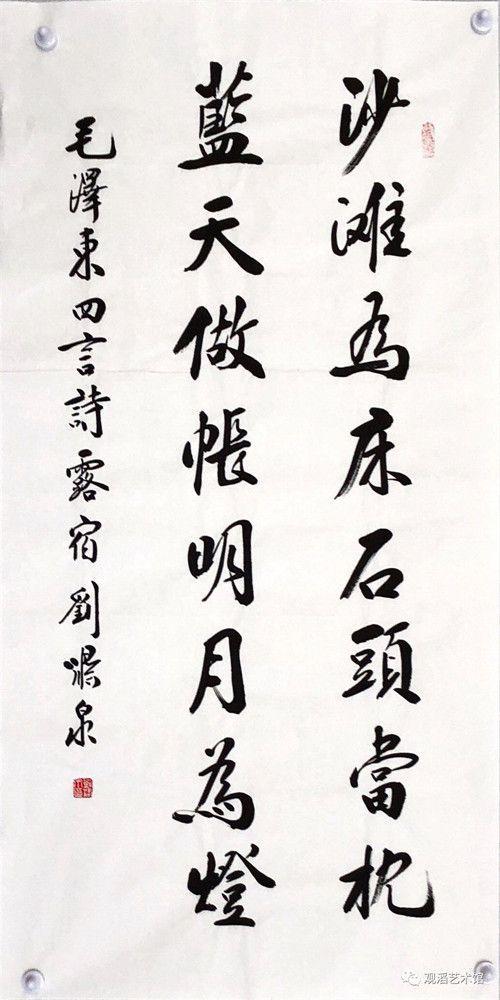 沙滩為床石頭當枕
藍天做帳明月為燈
毛澤東四言詩露宿劉泉
观滔艺术馆